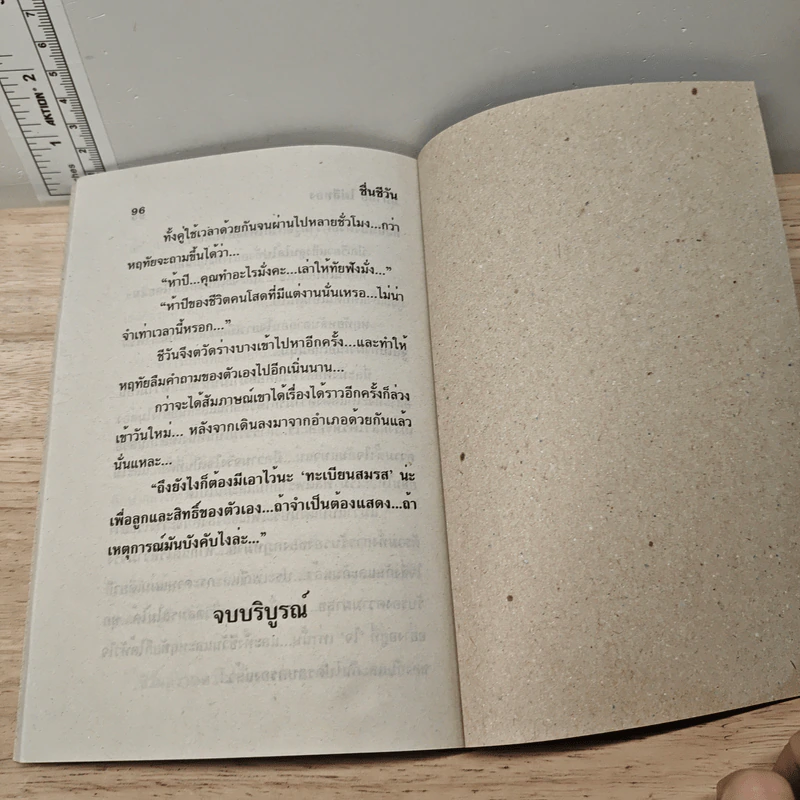 AKTION
1
2
4
5
6
7
96
ชื่นชีวัน
ทั้งคู่ใช้เวลาด้วยกันจนผ่านไปหลายชั่วโมง...กว่า
หฤทัยจะถามขึ้นได้ว่า...
“ห้าปี...คุณทำอะไรมั่งคะ...เล่าให้ทัยฟังมั่ง...”
“ห้าปีของชีวิตคนโสดที่มีแต่งานนั่นเหรอ...ไม่น่า
จำเท่าเวลานี้หรอก...”
ชีวันจึงตวัดร่างบางเข้าไปหาอีกครั้ง...และทำให้
หฤทัยลืมคำถามของตัวเองไปอีกเนิ่นนาน...
กว่าจะได้สัมภาษณ์เขาได้เรื่องได้ราวอีกครั้งก็ล่วง
เข้าวันใหม่... หลังจากเดินลงมาจากอำเภอด้วยกันแล้ว
นั่นแหละ...
“ถึงยังไงก็ต้องมีเอาไว้นะ ‘ทะเบียนสมรส’ น่ะ
เพื่อลูกและสิทธิ์ของตัวเอง...ถ้าจำเป็นต้องแสดง...ถ้า
เหตุการณ์มันบังคับไงล่ะ...”
จบบริบูรณ์